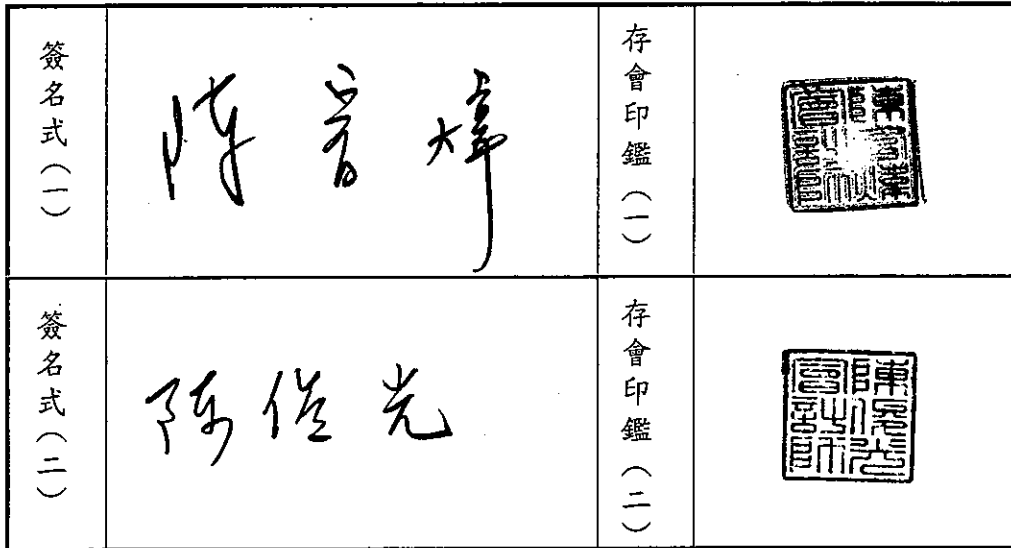 簽名式(一)
陳晉煒
存會印鑑(一)
簽名式(二)
陳俊光
存會印鑑(二)
陳俊光會計師